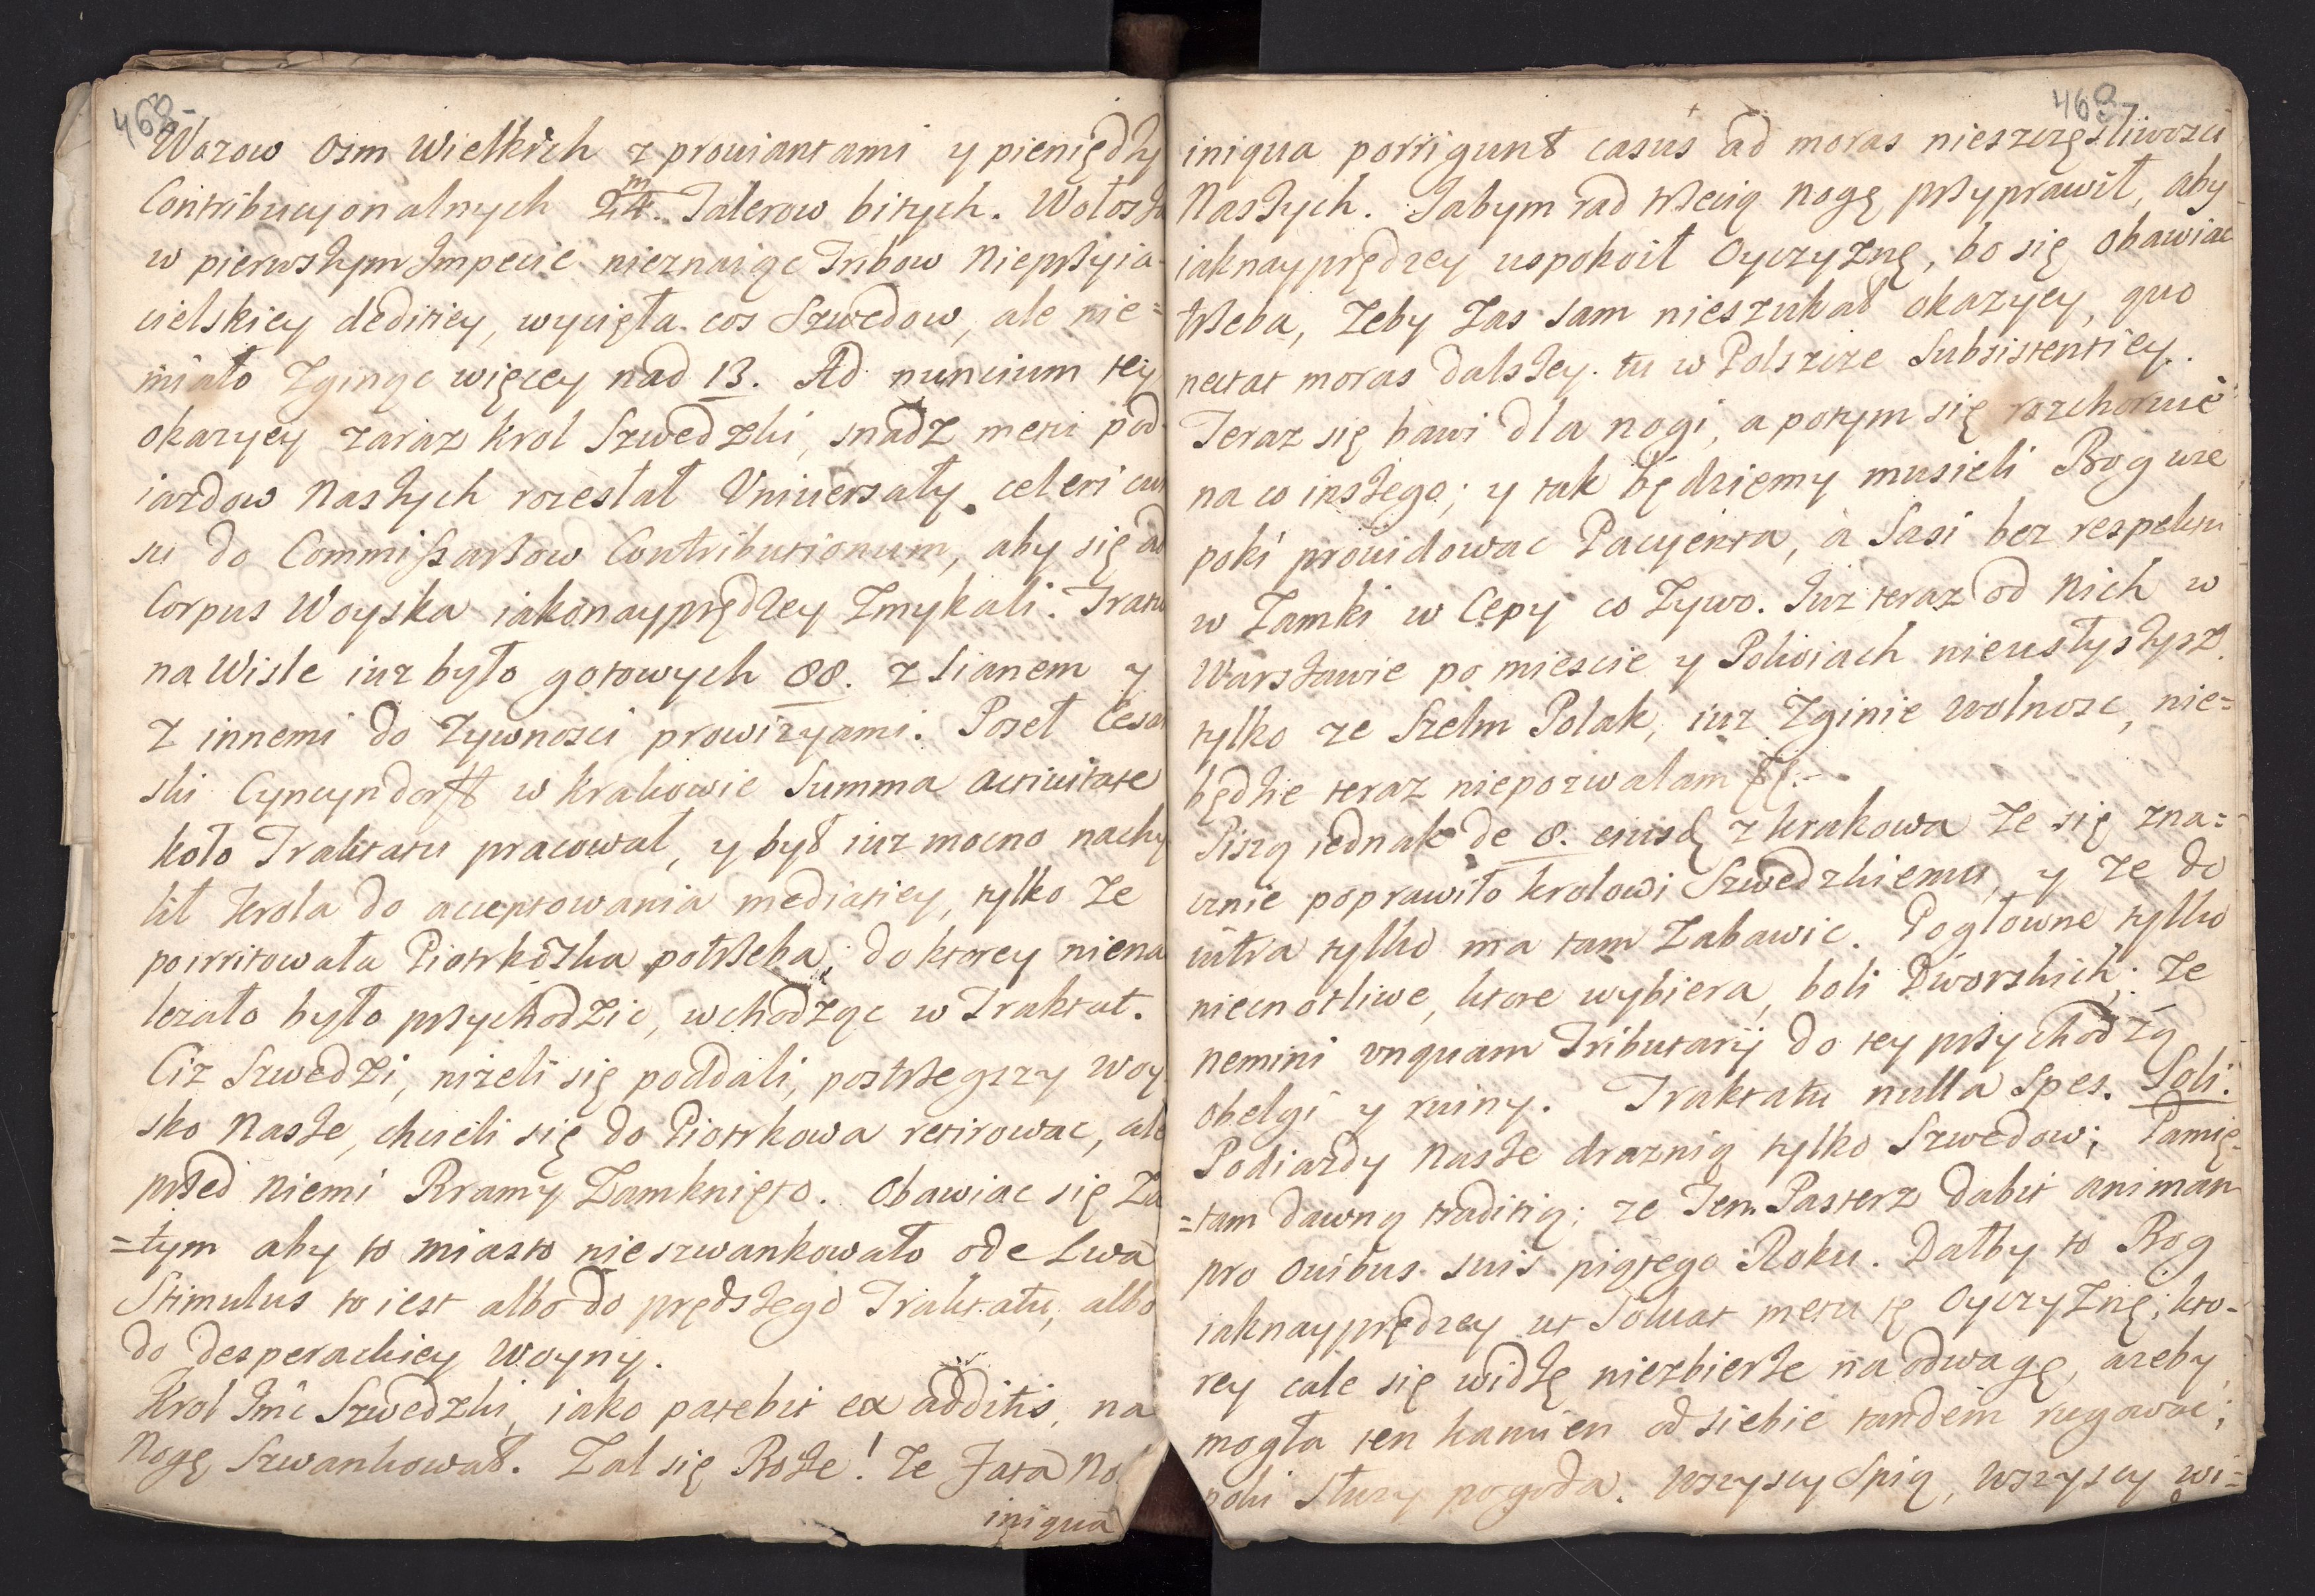 468
Wozow osm Wielkich z prowiantami y pieniędzy
Contribucyonalnych 24.m Talerow bitych. Wołosza
w pierwszym Impecie nieznaiąc Trybow Nieprzyia-
cielskiey deditiey, wycięła cos Szwedow, ale nie=
miało Zginąc więcey nad 13. Ad nuncium tey
okazyey zaraz krol Szwedzki, snadz metu pod-
iazdow Naszych rozesłał Vniuersały celeri cur
su do Commissarzow Contributionum, aby się ad
Corpus Woyska iakonayprędzey Zmykali. Tratw
na Wisle iuz było gotowych 88. z Sianem y
z innemi do Zywnosci prowizyami. Poseł Cesar
ski Cyncyndorff w krakowie Summa activitate
koło Traktatu pracował, y był iuz mocno nachy
lił krola do acceptowania mediatiey, tylko ze
poirritowała Piotrkowska potrzeba, do ktorey niena
lezało było przychodzic, wchodząc w Traktat.
Ciz Szwedzi, nizeli się poddali, postrzegszy Woy
sko Nasze, chcieli się do Piotrkowa retirowac, ale
przed niemi Bramy Zamknięto. Obawiac się Za
=tym aby to miasto nieszwankowało ode Lwa
Stimulus to iest albo do prędszego Traktatu, albo
do desperackiey Woyny.
Krol Jmc Szwedzki, iako patebit ex additis, na
Nogę Szwankował. Zal się Boze! Ze Fata No
iniqua
469
iniqua porrigunt casus ad moras nieszczęsliwosci
Naszych. Jabym rad trzecią nogę przyprawił, aby
iaknayprędzey uspokoił Oyczyznę, bo się obawiac
trzeba, Zeby Zas sam nieszukał okazyey, quo
nectat moras dalszey tu w Polszcze Subsistentiey.
Teraz się bawi dla nogi, a potym się rozchoruie
na co inszego; y tak będziemy musieli Bog wie
poki prouidowac Pacyenta, a Sasi bez respektu
w Zamki w Cepy co Zywo. Juz teraz od Nich w
Warszawie po miescie y Pokoiach nieusłyszysz
tylko ze Szelm Polak, iuz Zginie wolnosc, nie=
będzie teraz niepozwalam etc.
Piszą iednak de 8. eiusd z krakowa Ze się zna=
cznie poprawiło krolowi Szwedzkiemu, y ze do
iutra tylko ma tam Zabawic. Pogłowne tylko
niecnotliwe, ktore wybiera, boli Dworskich; Ze
nemini vnquam Tributarij do tey przychodzą
obelgi y ruiny. Traktatu nulla Spes. Soli.
Podiazdy Nasze draznią tylko Szwedow; Pamię-
=tam dawną traditią; ze Ten Pasterz dabit animam
pro Ouibus suis piątego Roku. Dałby to Bog
iaknayprędzey ut Soluat metu tę Oyczyznę; kto-
rey cale się widzę niezbierze na odwagę, azeby
mogła ten kamien od siebie tandem rugowac;
poki słuzy pogoda. Wszyscy Spią, Wszyscy wi=